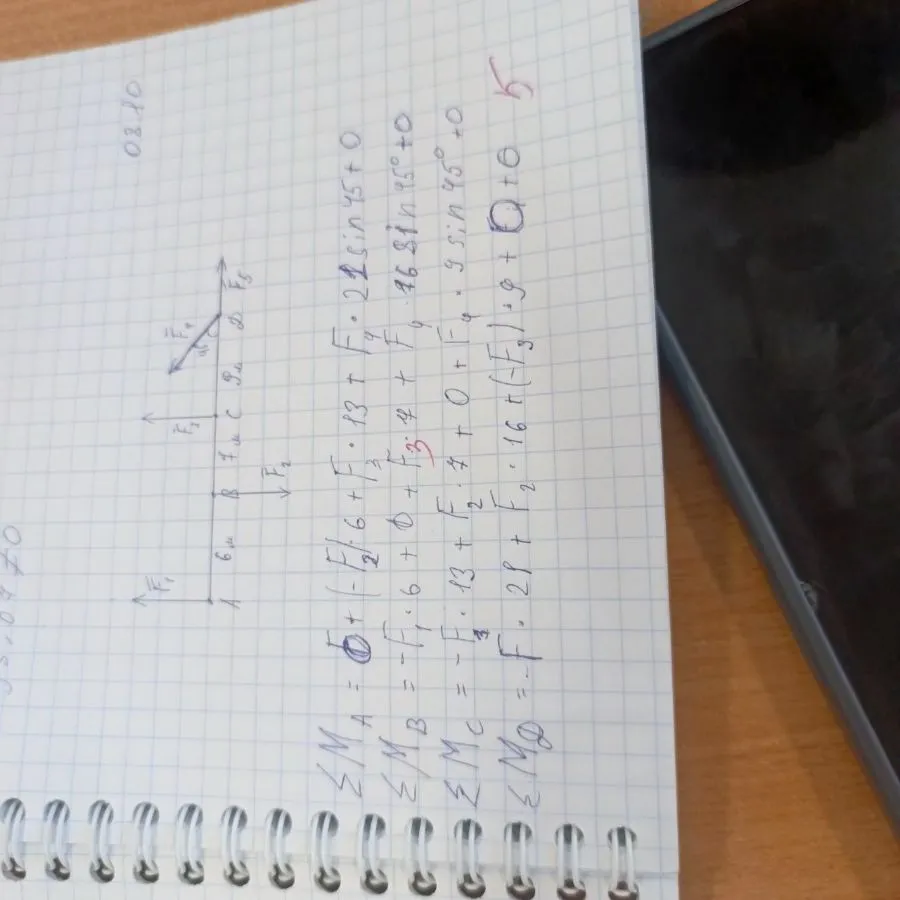 03.10
F̅₁ F̅₃ F̅₄ 45°
A 6м B 7м C 9м D F̅₅
F̅₂
ΣM_A = 0 + (-F₂)·6 + F₃·13 + F₄·22 sin 45 + 0
ΣM_B = -F₁·6 + 0 + F₃·7 + F₄·16 sin 45° + 0
ΣM_C = -F₁·13 + F₂·7 + 0 + F₄·9 sin 45° + 0
ΣM_D = -F·21 + F₂·16 + (-F₃)·9 + 0 + 0 5